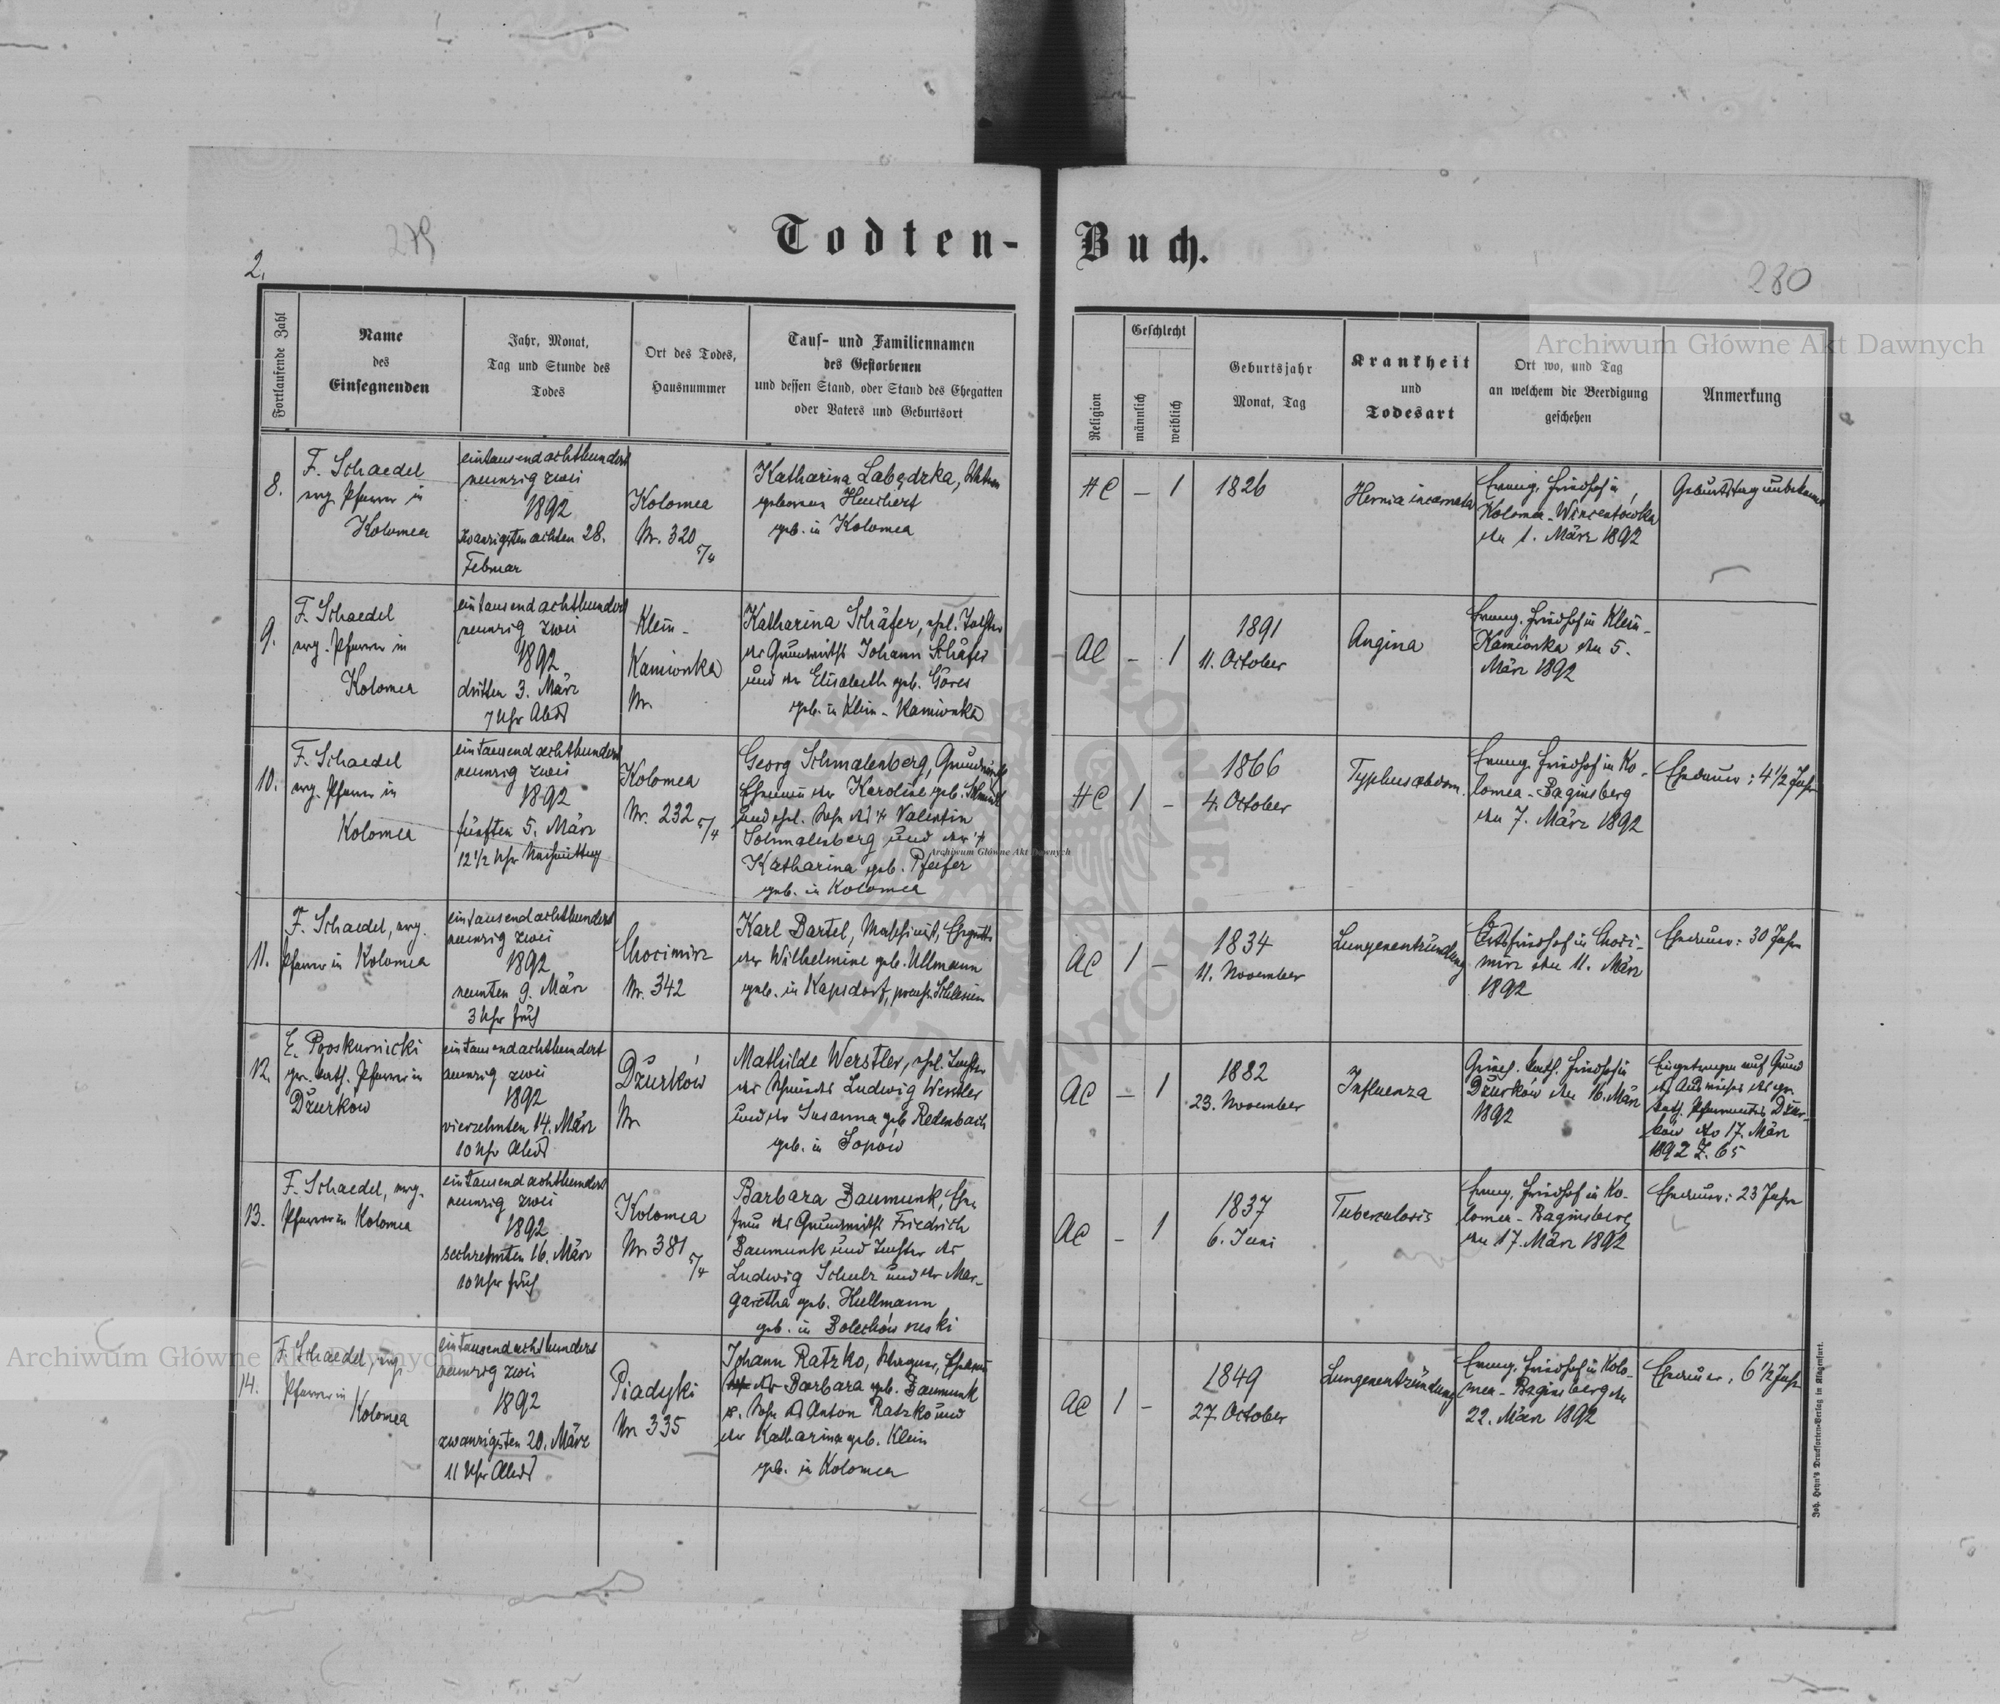 279
2.
Todten-Buch.
280
Archiwum Główne Akt Dawnych
Fortlaufende Zahl
Name
des
Einsegnenden
Jahr, Monat,
Tag und Stunde des
Todes
Ort des Todes,
Hausnummer
Tauf- und Familiennamen
des Gestorbenen
und dessen Stand, oder Stand des Ehegatten
oder Vaters und Geburtsort
Religion
Geschlecht
männlich
weiblich
Geburtsjahr
Monat, Tag
Krankheit
und
Todesart
Ort wo, und Tag
an welchem die Beerdigung
geschehen
Anmerkung
8.
F. Schaedel
evg. Pfarrer in
Kolomea
eintausendachthundert
neunzig zwei
1892
zwanzigsten achten 28.
Februar
Kolomea
Nr. 320 5/4
Katharina Labędzka, Witwe
geborene
geb. in Kolomea
HC
–
1
1826
Hernia incarnata
Evang. Friedhof in
Kolomea-Wincentówka
den 1. März 1892
Geburtstag unbekannt
9.
F. Schaedel
evg. Pfarrer in
Kolomea
eintausendachthundert
neunzig zwei
1892
dritten 3. März
7 Uhr Abds
Klein-
Kamionka
Nr.
Katharina Schäfer, ehel. Tochter
des Grundwirths Johann Schäfer
und der Elisabeth geb. Göres
geb. in Klein-Kamionka
AC
–
1
1891
11. October
Angina
Evang. Friedhof in Klein-
Kamionka den 5.
März 1892
10.
F. Schaedel
evg. Pfarrer in
Kolomea
eintausendachthundert
neunzig zwei
1892
fünften 5. März
12 1/2 Uhr Nachmittag
Kolomea
Nr. 232 5/4
Georg Schmalenberg, Grundwirth
Ehemann der Karoline geb. Schmidt
und ehel. Sohn des † Valentin
Schmalenberg und der †
Katharina geb. Pfeifer
geb. in Kolomea
HC
1
–
1866
4. October
Typhus abdom.
Evang. Friedhof in Ko-
lomea-Baginsberg
den 7. März 1892
Ehedauer: 4 1/2 Jahr
Archiwum Główne Akt Dawnych
11.
F. Schaedel, evg.
Pfarrer in Kolomea
eintausendachthundert
neunzig zwei
1892
neunten 9. März
3 Uhr früh
Chocimirz
Nr. 342
Karl Bartel, Maschinist, Ehegatte
der Wilhelmine geb. Ullmann
geb. in Kapsdorf, preuss. Schlesien
AC
1
–
1834
11. November
Lungenentzündung
Ortsfriedhof in Choci-
mirz den 11. März
1892
Ehedauer: 30 Jahre
12.
Proskurnicki
gr. kath. Pfarrer in
Dżurków
eintausendachthundert
neunzig zwei
1892
vierzehnten 14. März
10 Uhr Abds
Dżurków
Nr.
Mathilde Werstler, ehel. Tochter
des Schmiedes Ludwig Werstler
und der Susanna geb. Redenbach
geb. in Sopów
AC
–
1
1882
23. November
Influenza
Griech. kath. Friedhof in
Dżurków den 16. März
1892
Eingetragen auf Grund
des Ausweises des gr.
kath. Pfarramtes Dżur-
ków dto 17. März
1892 Z. 65
13.
F. Schaedel, evg.
Pfarrer in Kolomea
eintausendachthundert
neunzig zwei
1892
sechzehnten 16. März
10 Uhr früh
Kolomea
Nr. 381 5/4
Barbara Baumunk, Ehe-
frau des Grundwirths Friedrich
Baumunk und Tochter des
Ludwig Schulz und der Mar-
garetha geb. Hullmann
geb. in Bolechów ruski
AC
–
1
1837
6. Juni
Tuberculosis
Evang. Friedhof in Ko-
lomea-Baginsberg
den 17. März 1892
Ehedauer: 23 Jahre
14.
F. Schaedel, evg.
Pfarrer in
Kolomea
eintausendachthundert
neunzig zwei
1892
zwanzigsten 20. März
11 Uhr Abds
Piadyki
Nr. 335
Johann Ratzko, Wagner, Ehemann
der Barbara geb. Baumunk
e. Sohn des Anton Ratzko und
der Katharina geb. Klein
geb. in Kolomea
AC
1
–
1849
27. October
Lungenentzündung
Evang. Friedhof in Kolo-
mea-Baginsberg den
22. März 1892
Ehedauer: 6 1/2 Jahr
Archiwum Główne Akt Dawnych
Joh. Heyn's Drucksorten-Verlag in Klagenfurt.